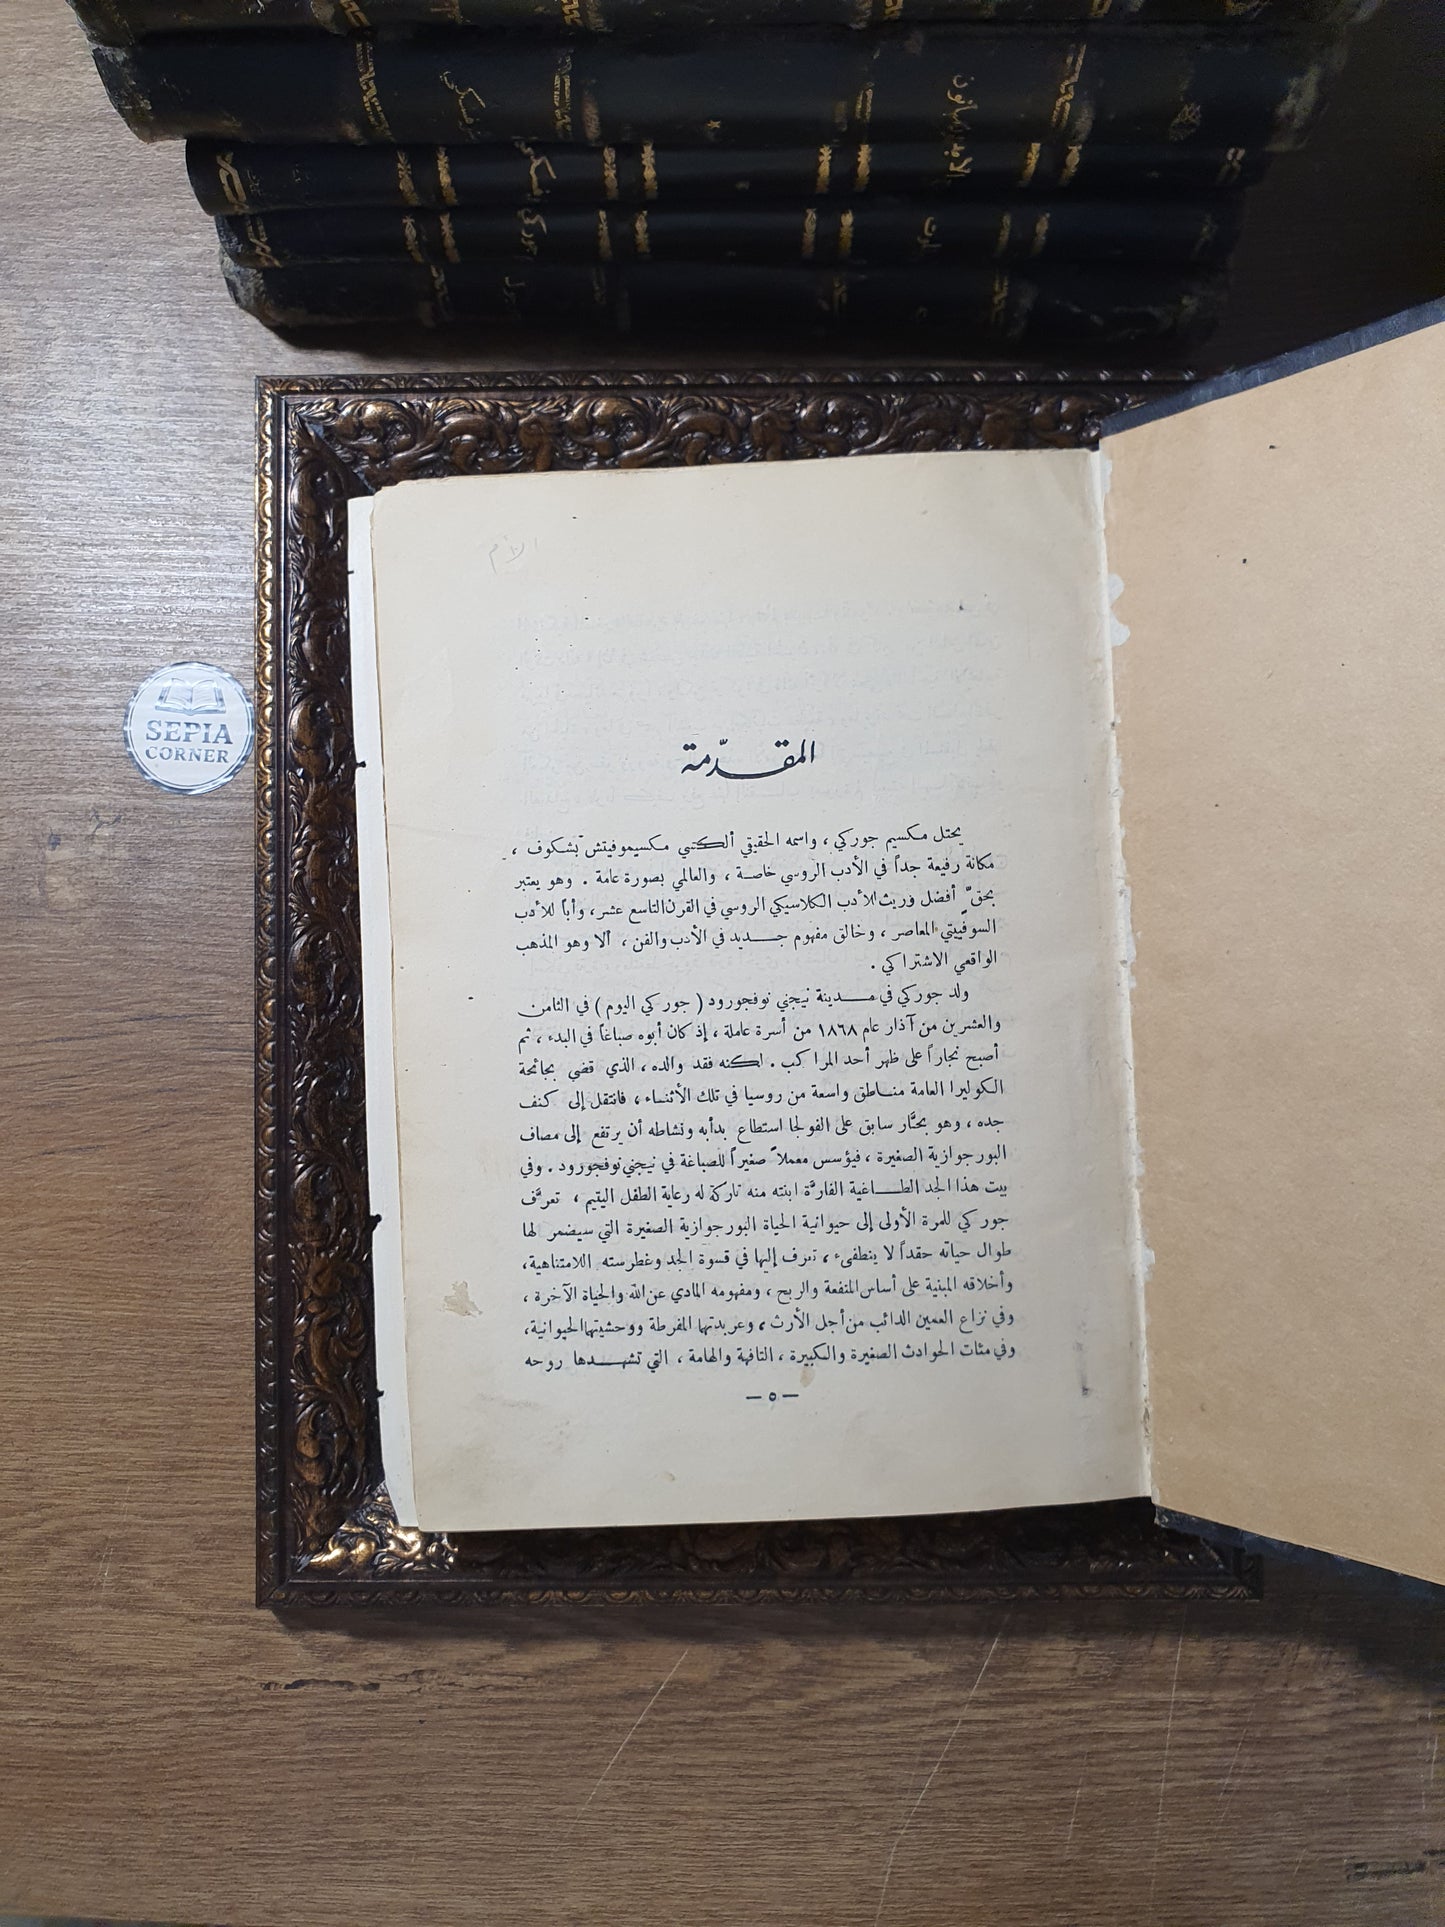 دستويفسكي
الأبله
مكسيم جوركي
SEPIA
CORNER
الأم
المقدّمة
يحتل مكسيم جوركي ، واسمه الحقيقي ألكسي مكسيموفيتش بشكوف ،
مكانة رفيعة جداً في الأدب الروسي خاصة ، والعالمي بصورة عامة . وهو يعتبر
بحقّ أفضل وريث للأدب الكلاسيكي الروسي في القرن التاسع عشر ، وأباً للأدب
السوفييتي المعاصر ، وخالق مفهوم جديد في الأدب والفن ، ألا وهو المذهب
الواقعي الاشتراكي .
ولد جوركي في مدينة نيجني نوفجورود ( جوركي اليوم ) في الثامن
والعشرين من آذار عام ١٨٦٨ من أسرة عاملة ، إذ كان أبوه صباغاً في البدء ، ثم
أصبح نجاراً على ظهر أحد المراكب . لكنه فقد والده ، الذي قضى بجائحة
الكوليرا العامة مناطق واسعة من روسيا في تلك الأثناء ، فانتقل إلى كنف
جده ، وهو بحّار سابق على الفولجا استطاع بدأبه ونشاطه أن يرتفع إلى مصاف
البورجوازية الصغيرة ، فيؤسس معملاً صغيراً للصباغة في نيجني نوفجورود . وفي
بيت هذا الجد الطاغية الفارّة ابنته منه تاركة له رعاية الطفل اليتيم ، تعرّف
جوركي للمرة الأولى إلى حيوانية الحياة البورجوازية الصغيرة التي سيضمر لها
طوال حياته حقداً لا ينطفىء ، تعرف إليها في قسوة الجد وغطرسته اللامتناهية ،
وأخلاقه المبنية على أساس المنفعة والربح ، ومفهومه المادي عن الله والحياة الآخرة ،
وفي نزاع العمين الدائب من أجل الأرث ، وعربدتهما المفرطة ووحشيتهما الحيوانية ،
وفي مئات الحوادث الصغيرة والكبيرة ، التافهة والهامة ، التي تشهدها روحه
— ٥ —